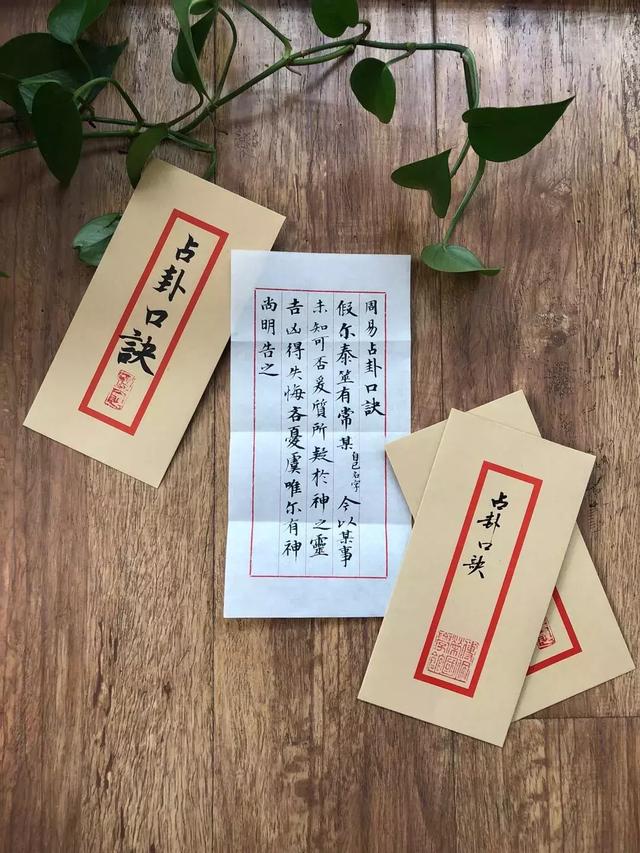 占卦口訣
周易占卦口訣
假尔泰筮有常某自己名字今以某事
未知可否爰質所疑於神之靈
吉凶得失悔吝憂虞唯尔有神
尚明告之
占卦口訣